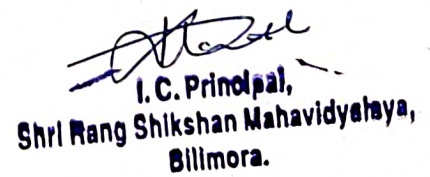 I. C. Principal,
Shri Rang Shikshan Mahavidyalaya,
Bilimora.